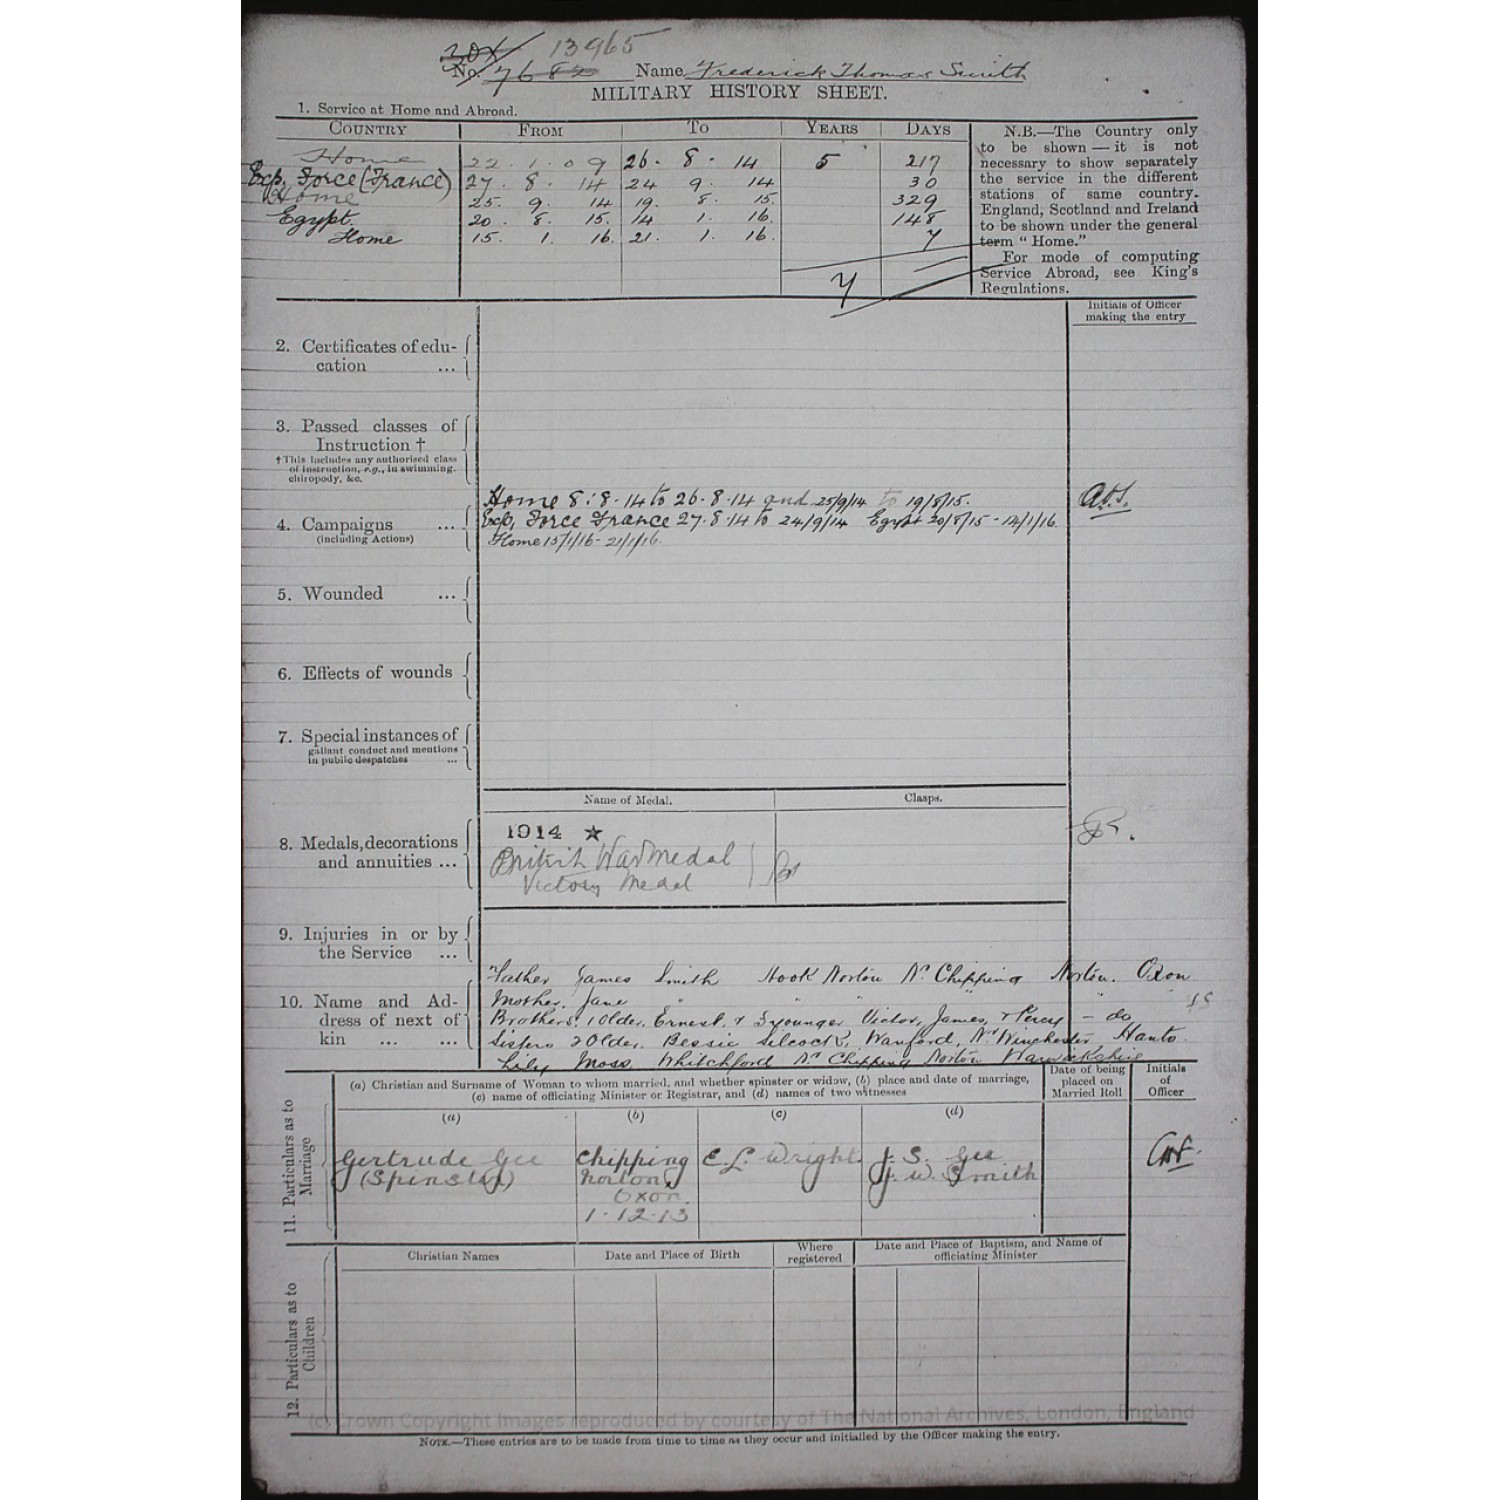 13965
No. 7682 Name Frederick Thomas Smith
MILITARY HISTORY SHEET.
1. Service at Home and Abroad.
COUNTRY FROM TO YEARS DAYS
Home 22. 1. 09 26. 8. 14 5 217
Exp. Force (France) 27. 8. 14 24 9. 14 30
Home 25. 9. 14 19. 8. 15. 329
Egypt. 20. 8. 15. 14 1. 16. 148
Home 15. 1. 16. 21. 1. 16. 7
7
N.B.—The Country only
to be shown — it is not
necessary to show separately
the service in the different
stations of same country.
England, Scotland and Ireland
to be shown under the general
term “Home.”
For mode of computing
Service Abroad, see King's
Regulations.
Initials of Officer
making the entry
2. Certificates of edu-
cation ...
3. Passed classes of
Instruction †
† This includes any authorised class
of instruction, e.g., in swimming,
chiropody, &c.
Home 8.8.14 to 26.8.14 and 25/9/14 to 19/8/15.
4. Campaigns ... Exp. Force France 27.8.14 to 24/9/14 Egypt 20/8/15 - 14/1/16.
(including Actions) Home 15/1/16 - 21/1/16.
5. Wounded ...
6. Effects of wounds
7. Special instances of
gallant conduct and mentions
in public despatches ...
Name of Medal. Clasps.
8. Medals, decorations
and annuities ...
1914 ★
British War Medal
Victory Medal
9. Injuries in or by
the Service ...
10. Name and Ad-
dress of next of
kin ... ...
Father James Smith Hook Norton Nr. Chipping Norton. Oxon
Mother. Jane " " " "
Brothers. 1 Older. Ernest. & 3 younger Victor, James, & Percy - do
Sisters 2 Older. Bessie Silcock, Wanford, Nr. Winchester Hants.
Lily Moss. Whitchford Nr. Chipping Norton Warwickshire
11. Particulars as to
Marriage
(a) Christian and Surname of Woman to whom married, and whether spinster or widow, (b) place and date of marriage,
(c) name of officiating Minister or Registrar, and (d) names of two witnesses
Date of being
placed on
Married Roll
Initials
of
Officer
(a) (b) (c) (d)
Gertrude Gee
(Spinster)
Chipping
Norton,
Oxon.
1.12.13
E. L. Wright.
J. S. Gee
J. W. Smith
12. Particulars as to
Children
Christian Names Date and Place of Birth Where
registered Date and Place of Baptism, and Name of
officiating Minister
(c) Crown Copyright Images reproduced by courtesy of The National Archives, London, England
NOTE.—These entries are to be made from time to time as they occur and initialled by the Officer making the entry.